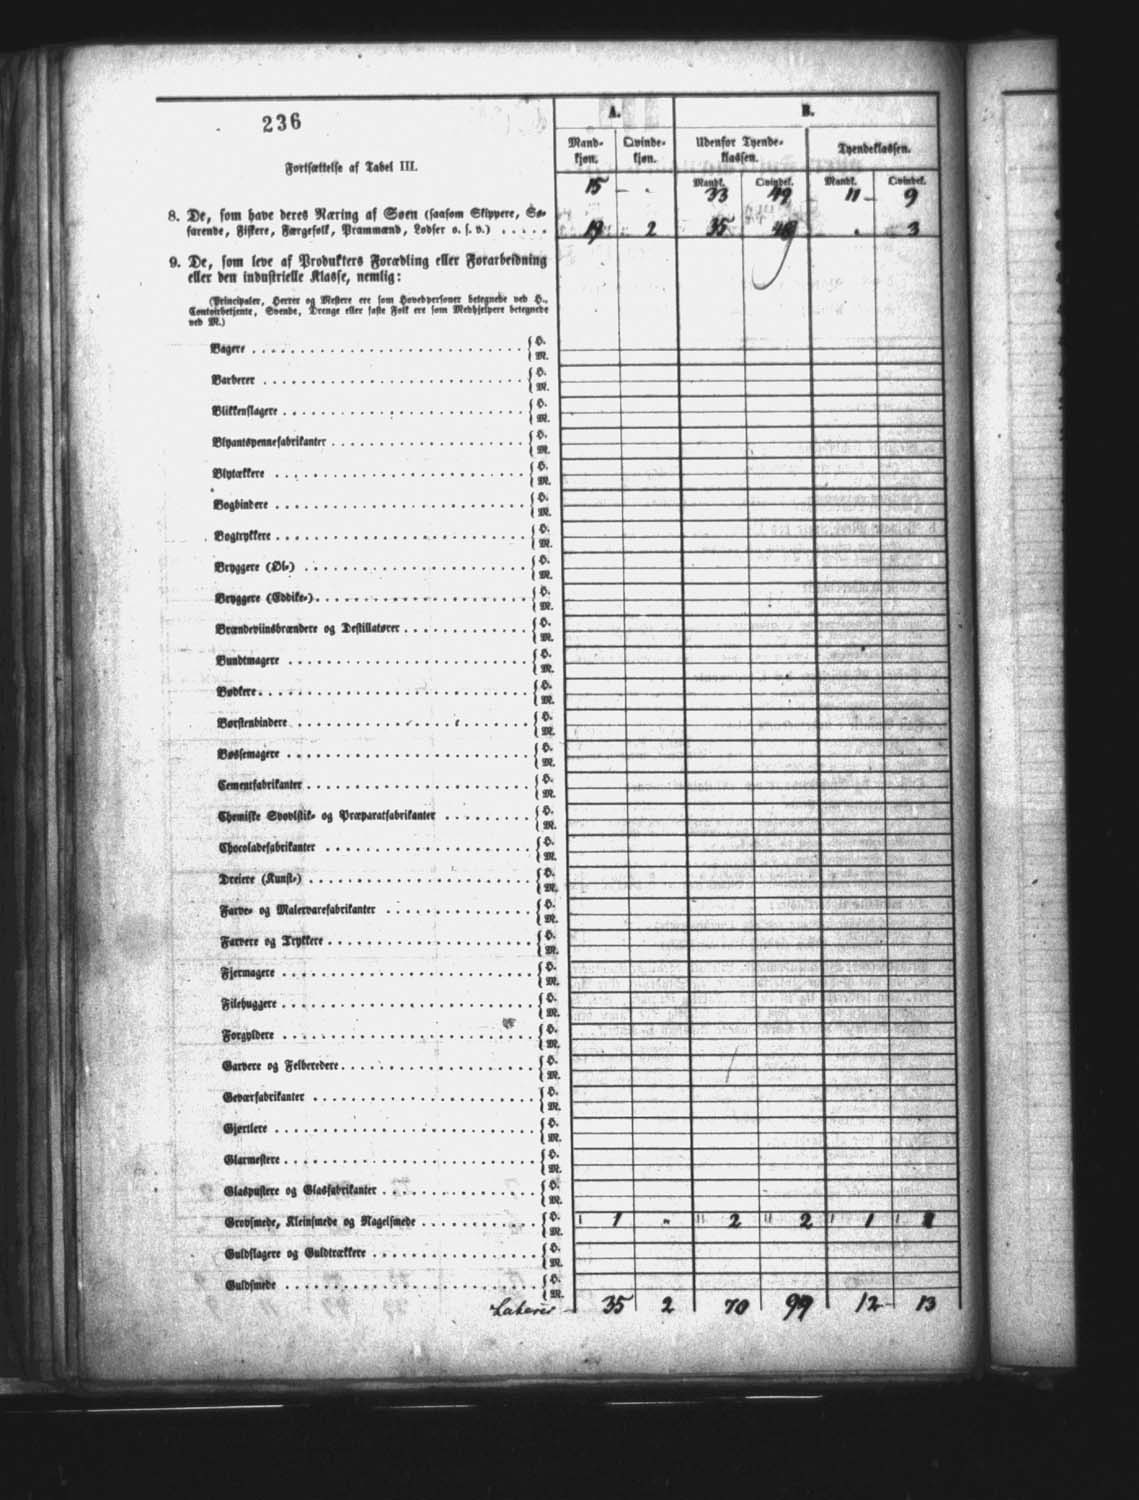 236
Fortsættelse af Tabel III.
A. B.
Mand- Qvinde- Udenfor Tyende- Tyendeklassen.
kjøn. kjøn. klassen.
Mandk. Qvindek. Mandk. Qvindek.
15 — . 33 49 11 — 9
8. De, som have deres Næring af Søen (saasom Skippere, Sø-
farende, Fiskere, Færgefolk, Prammænd, Lodser o. s. v.) . . . . . 19 2 35 48 . 3
9. De, som leve af Produkters Forædling eller Forarbeidning
eller den industrielle Klasse, nemlig:
(Principaler, Herrer og Mestere ere som Hovedpersoner betegnede ved H.,
Contoirbetjente, Svende, Drenge eller faste Folk ere som Medhjelpere betegnede
ved M.)
Bagere { H.
{ M.
Barberer { H.
{ M.
Blikkenslagere { H.
{ M.
Blyantspennefabrikanter { H.
{ M.
Blytækkere { H.
{ M.
Bogbindere { H.
{ M.
Bogtrykkere { H.
{ M.
Bryggere (Øl-) { H.
{ M.
Bryggere (Eddike-) { H.
{ M.
Brændeviinsbrændere og Destillatører { H.
{ M.
Bundtmagere { H.
{ M.
Bødkere { H.
{ M.
Børstenbindere { H.
{ M.
Bøssemagere { H.
{ M.
Cementfabrikanter { H.
{ M.
Chemiske Svovlstik- og Præparatfabrikanter { H.
{ M.
Chocoladefabrikanter { H.
{ M.
Dreiere (Kunst-) { H.
{ M.
Farve- og Malervarefabrikanter { H.
{ M.
Farvere og Trykkere { H.
{ M.
Fjermagere { H.
{ M.
Filehuggere { H.
{ M.
Forgyldere { H.
{ M.
Garvere og Felberedere { H.
{ M.
Geværfabrikanter { H.
{ M.
Gjørtlere { H.
{ M.
Glarmestere { H.
{ M.
Glaspustere og Glasfabrikanter { H.
{ M.
Grovsmede, Kleinsmede og Nagelsmede { H. 1 " 2 2 1 1
{ M.
Guldslagere og Guldtrækkere { H.
{ M.
Guldsmede { H.
{ M.
Lateres — 35 2 70 99 12 — 13